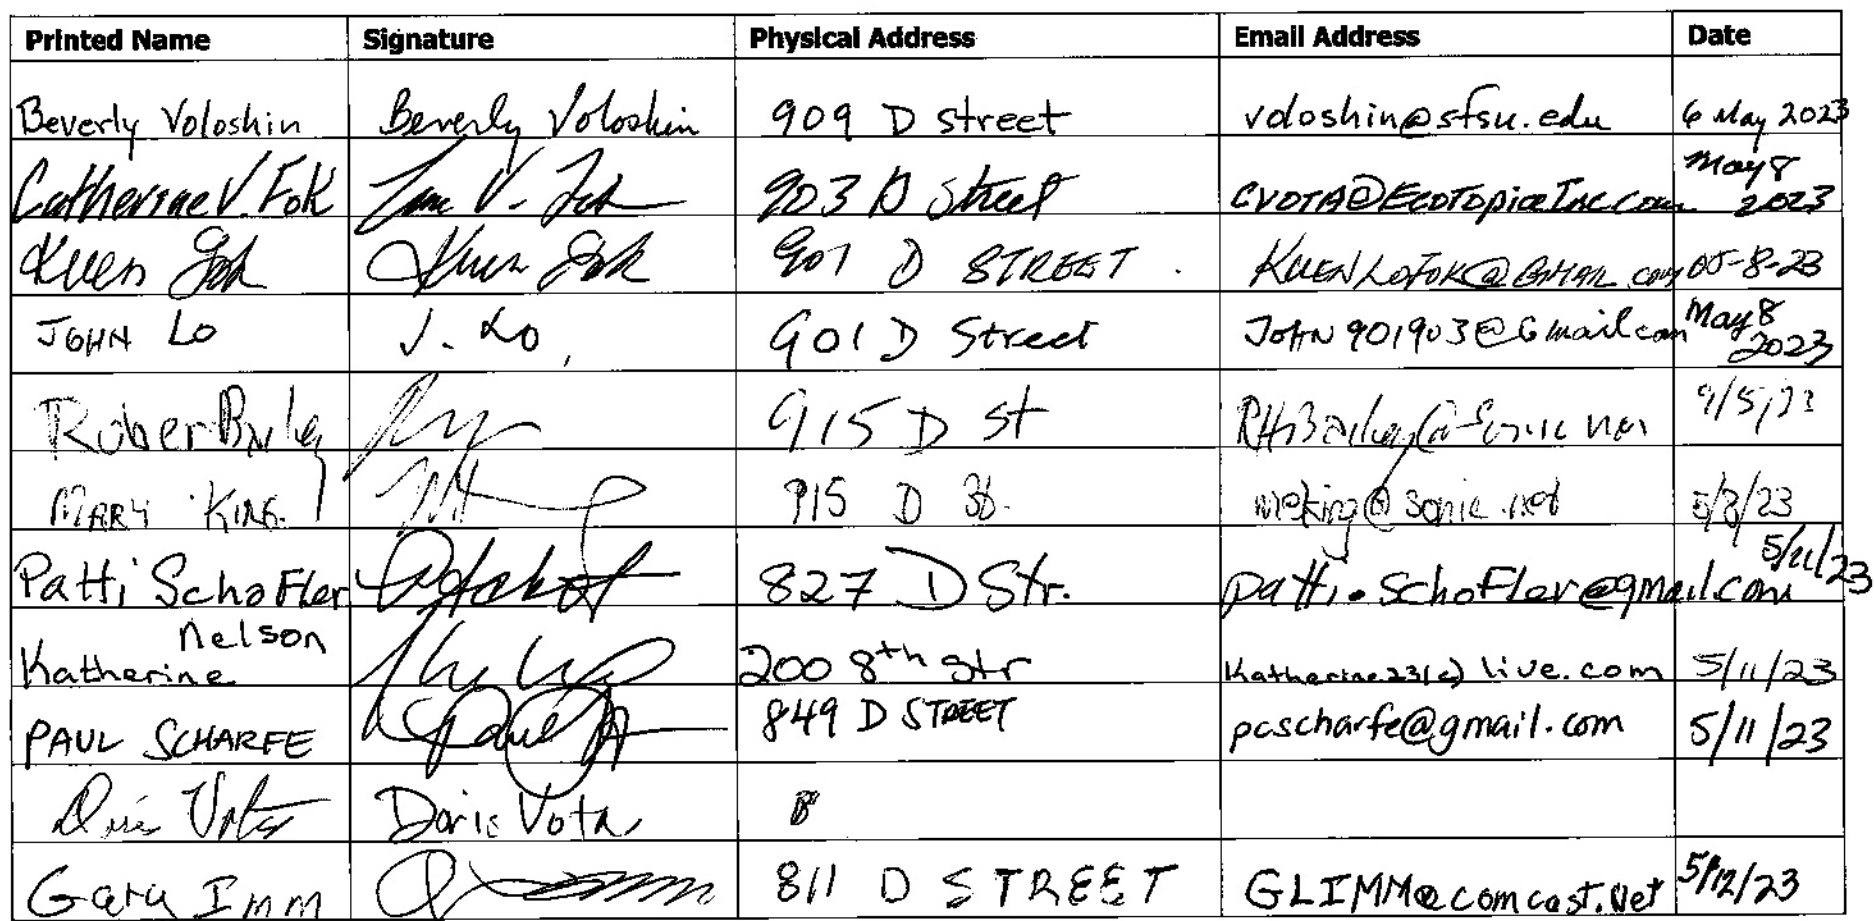 Printed Name Signature Physical Address Email Address Date
Beverly Voloshin Beverly Voloshin 909 D street voloshin@sfsu.edu 6 May 2023
Catherine V. Fok V. Fok 903 D Street CVOTA@EcoTopiaInc.com May 8 2023
Kuen Fok Kuen Fok 901 D STREET. KUENLOFOK@GMAIL.com 05-8-23
JOHN Lo J. Lo, 901 D Street John901903@Gmail.com May 8 2023
915 D St
MARY KING. 915 D St. meking@sonic.net 5/8/23
Patti Schofler 827 D Str. patti.schofler@gmail.com 5/11/23
Nelson
Katherine 200 8th str Katherine23(c) live.com 5/11/23
PAUL SCHARFE Paul 849 D STREET pcscharfe@gmail.com 5/11/23
Doris Vota Doris Vota 8
Gary Imm 811 D STREET GLIMM@comcast.Net 5/12/23